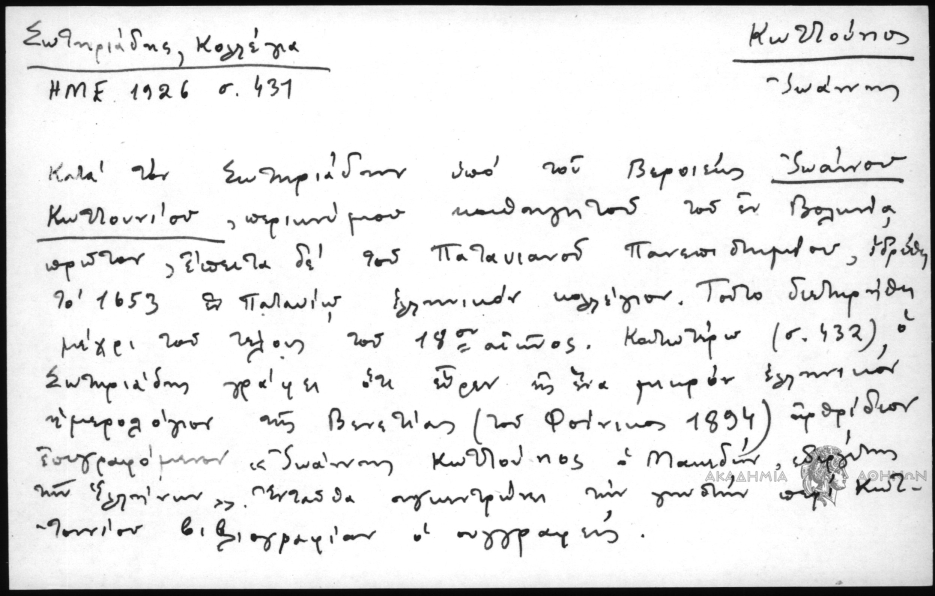 Σωτηριάδης, Κολλέγια
ΗΜΕ 1926 σ. 431
Κωττούνιος
Ἰωάννης
Κατά τόν Σωτηριάδην ὑπό τοῦ Βεροιέως Ἰωάννου
Κωττουνίου, περιωνύμου καθηγητοῦ τοῦ ἐν Βολωνία,
πρῶτον, ἔπειτα δέ τοῦ Παταυιανοῦ Πανεπιστημίου, ἱδρύθη
τό 1653 ἐν Παταυίῳ ἑλληνικόν κολλέγιον. Τοῦτο διετηρήθη
μέχρι τοῦ τέλους τοῦ 18ου αἰῶνος. Κατωτέρω (σ. 432), ὁ
Σωτηριάδης γράφει ὅτι εὗρεν εἰς ἕνα μικρόν ἑλληνικόν
ἡμερολόγιον τῆς Βενετίας (τοῦ Φοίνικος 1894) ἀρθρίδιον
ἐπιγραφόμενον «Ἰωάννης Κωττούνιος ὁ Μακεδών, εὐεργέτης
τῶν Ἑλλήνων». Ἐνταῦθα συγκεντρώνει τήν γνωστήν περί Κωτ-
-τουνίου βιβλιογραφίαν ὁ συγγραφεύς.
ΑΚΑΔΗΜΙΑ ΑΘΗΝΩΝ